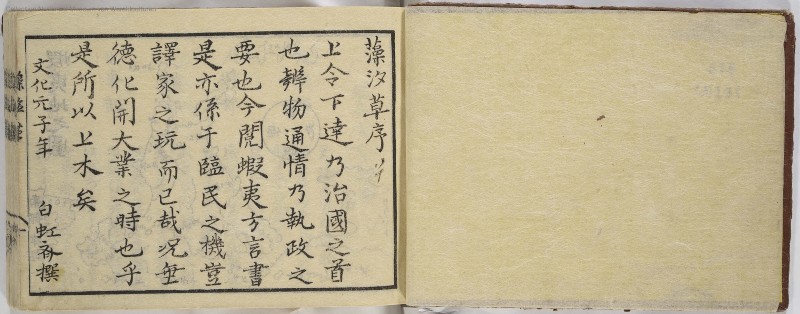 藻汐草序
上令下達乃治國之首
也辨物通情乃執政之
要也今閲蝦夷方言書
是亦係于臨民之機豈
譯家之玩而已哉况
德化開大業之時也乎
是所以上木矣
文化元子年
白虹斎撰